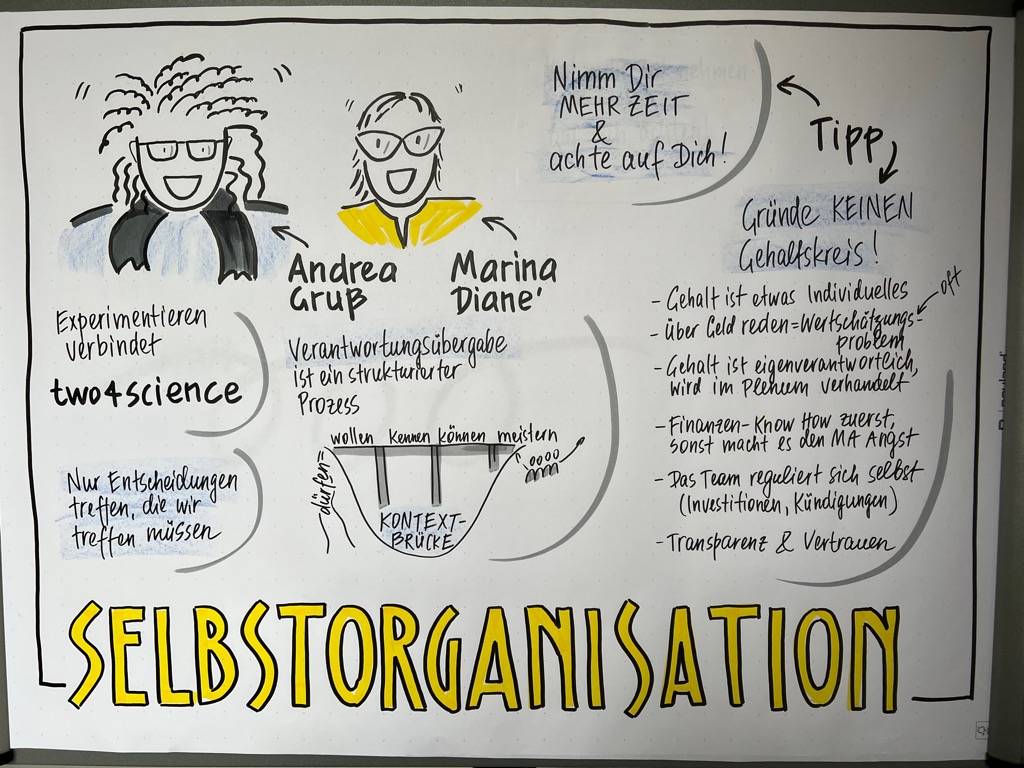 Nimm Dir
MEHR ZEIT
&
achte auf Dich!
Tipp
Gründe KEINEN
Gehaltskreis!
Andrea
Gruß
Marina
Diane'
Experimentieren
verbindet
two4science
Nur Entscheidungen
treffen, die wir
treffen müssen
Verantwortungsübergabe
ist ein strukturierter
Prozess
wollen kennen können meistern
dürfen=
KONTEXT-
BRÜCKE
- Gehalt ist etwas Individuelles
oft
- über Geld reden=Wertschätzungs-
problem
- Gehalt ist eigenverantwortlich,
wird im Plenum verhandelt
- Finanzen-Know How zuerst,
sonst macht es den MA Angst
- Das Team reguliert sich selbst
(Investitionen, Kündigungen)
- Transparenz & Vertrauen
SELBSTORGANISATION